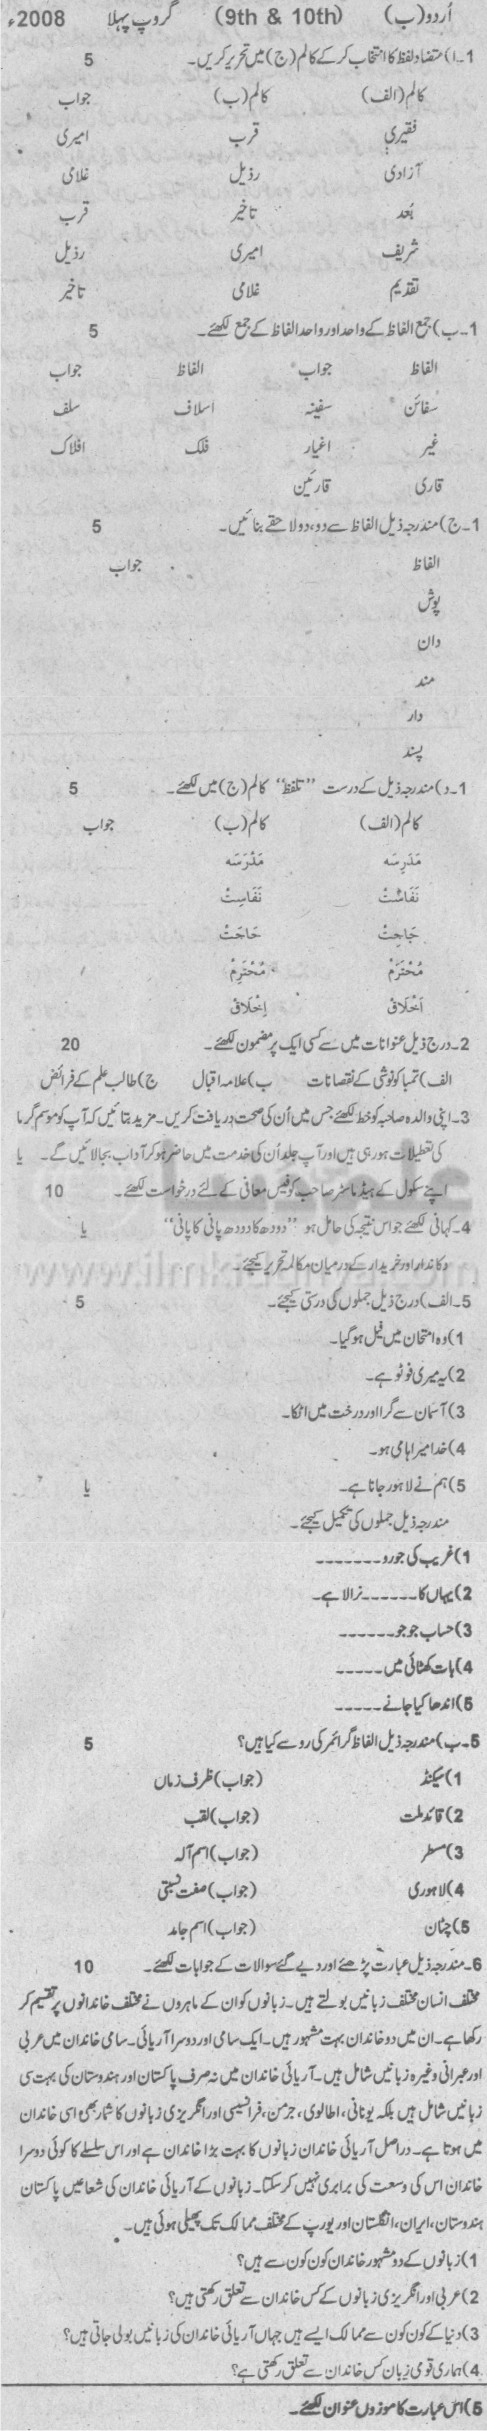 اُردو (ب) (9th & 10th) گروپ پہلا 2008ء
1۔ا) متضاد لفظ کا انتخاب کر کے کالم (ج) میں تحریر کریں۔ 5
کالم (الف) کالم (ب) جواب
فقیری قرب امیری
آزادی رذیل غلامی
بُعد تاخیر قرب
شریف امیری رذیل
تقدیم غلامی تاخیر
1۔ب) جمع الفاظ کے واحد اور واحد الفاظ کے جمع لکھئے۔ 5
الفاظ جواب الفاظ جواب
سفائن سفینہ اسلاف سلف
غیر اغیار فلک افلاک
قاری قارئین
1۔ج) مندرجہ ذیل الفاظ سے دو، دو لاحقے بنائیں۔ 5
الفاظ جواب
پوش
دان
مند
دار
پسند
1۔د) مندرجہ ذیل کے درست "تلفظ" کالم (ج) میں لکھئے۔ 5
کالم (الف) کالم (ب) جواب
مَدَرِسَہ مَدْرَسَہ
نَفَاسَتْ نَفَاسِتْ
حَاجِتْ حَاجَتْ
مُحْتَرَمْ مُحْتَرِمْ
اَخْلَاق اِخْلَاق
2۔درج ذیل عنوانات میں سے کسی ایک پر مضمون لکھئے۔ 20
الف) تمباکو نوشی کے نقصانات ب) علامہ اقبال ج) طالب علم کے فرائض
3۔اپنی والدہ صاحبہ کو خط لکھئے جس میں اُن کی صحت دریافت کریں۔ مزید بتائیں کہ آپ کو موسم گرما
کی تعطیلات ہو رہی ہیں اور آپ جلد اُن کی خدمت میں حاضر ہو کر آداب بجا لائیں گے۔ یا
اپنے سکول کے ہیڈ ماسٹر صاحب کو فیس معافی کے لئے درخواست لکھئے۔ 10
4۔کہانی لکھئے جو اس نتیجہ کی حامل ہو "دودھ کا دودھ پانی کا پانی" یا
دکاندار اور خریدار کے درمیان مکالمہ تحریر کیجئے۔
5۔الف) درج ذیل جملوں کی درستی کیجئے۔ 5
1) وہ امتحان میں فیل ہو گیا۔
2) یہ میری فوٹو ہے۔
3) آسمان سے گرا اور درخت میں اٹکا۔
4) خدا میرا ہامی ہو۔
5) ہم نے لاہور جانا ہے۔ یا
مندرجہ ذیل جملوں کی تکمیل کیجئے۔
1) غریب کی جورو-------
2) یہاں کا------نرالا ہے۔
3) حساب جو جو------
4) بات کھٹائی میں-----
5) اندھا کیا جانے-----
5۔ب) مندرجہ ذیل الفاظ گرائمر کی رو سے کیا ہیں؟ 5
1) سیکنڈ (جواب) ظرف زماں
2) قائد ملت (جواب) لقب
3) مسطر (جواب) اسم آلہ
4) لاہوری (جواب) صفت نسبتی
5) چٹان (جواب) اسم جامد
6۔مندرجہ ذیل عبارت پڑھئے اور دیے گئے سوالات کے جوابات لکھئے۔ 10
مختلف انسان مختلف زبانیں بولتے ہیں۔ زبانوں کو ان کے ماہروں نے مختلف خاندانوں پر تقسیم کر
رکھا ہے۔ ان میں دو خاندان بہت مشہور ہیں۔ ایک سامی اور دوسرا آریائی۔ سامی خاندان میں عربی
اور عبرانی وغیرہ زبانیں شامل ہیں۔ آریائی خاندان میں نہ صرف پاکستان اور ہندوستان کی بہت سی
زبانیں شامل ہیں بلکہ یونانی، اطالوی، جرمن، فرانسیسی اور انگریزی زبانوں کا شمار بھی اسی خاندان
میں ہوتا ہے۔ دراصل آریائی خاندان زبانوں کا بہت بڑا خاندان ہے اور اس سلسلے کا کوئی دوسرا
خاندان اس کی وسعت کی برابری نہیں کر سکتا۔ زبانوں کے آریائی خاندان کی شعاعیں پاکستان
ہندوستان، ایران، انگلستان اور یورپ کے مختلف ممالک تک پھیلی ہوئی ہیں۔
1) زبانوں کے دو مشہور خاندان کون کون سے ہیں؟
2) عربی اور انگریزی زبانوں کے کس خاندان سے تعلق رکھتی ہیں؟
3) دنیا کے کون کون سے ممالک ایسے ہیں جہاں آریائی خاندان کی زبانیں بولی جاتی ہیں؟
4) ہماری قومی زبان کس خاندان سے تعلق رکھتی ہے؟
5) اس عبارت کا موزوں عنوان لکھئے۔